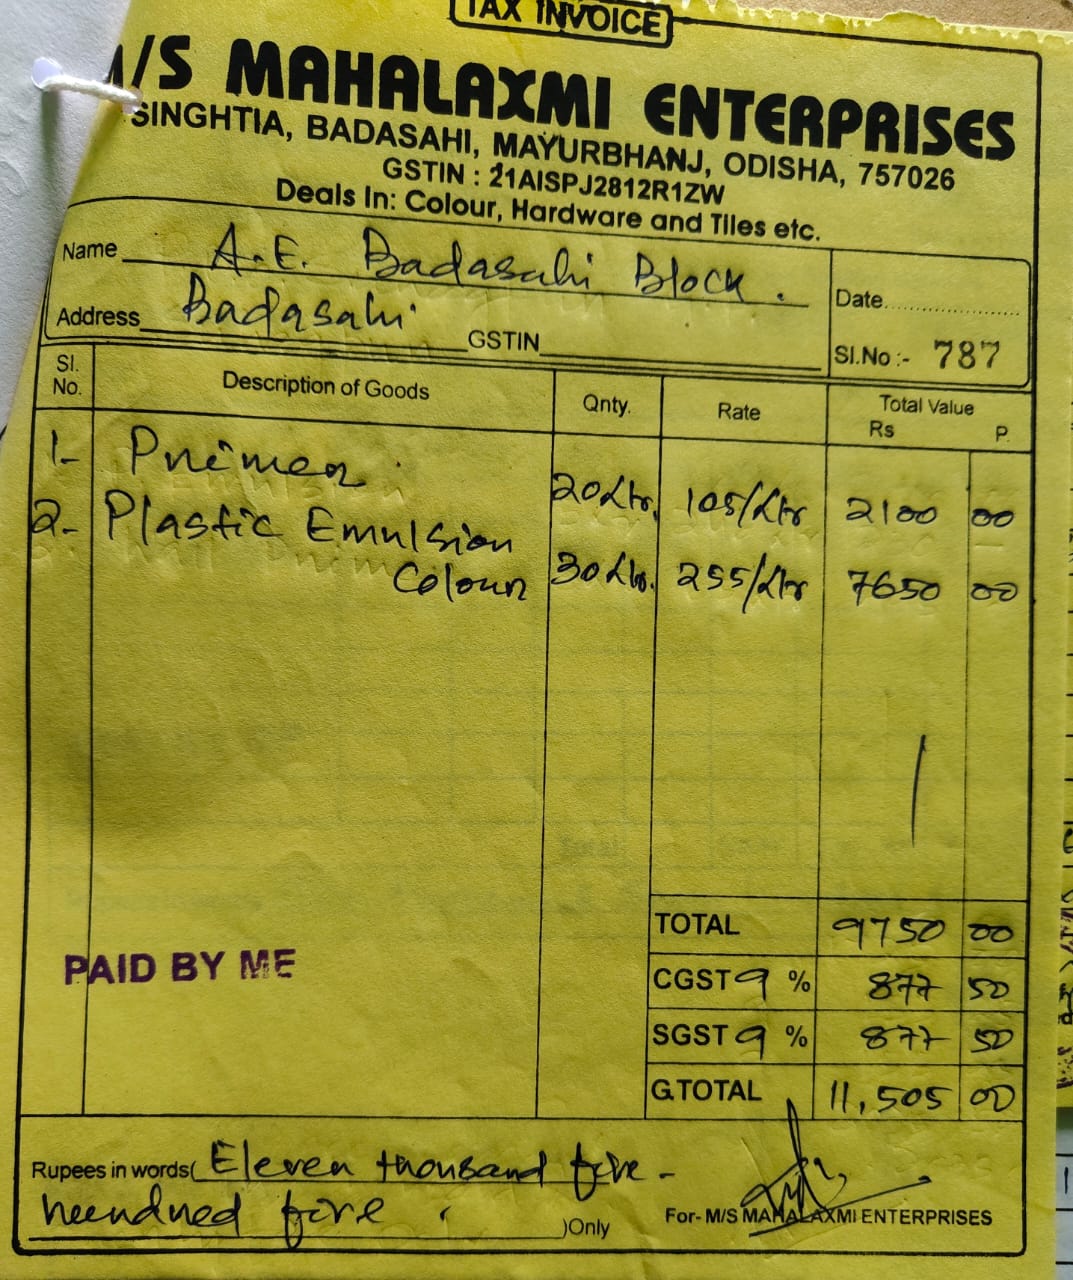 TAX INVOICE
M/S MAHALAXMI ENTERPRISES
SINGHTIA, BADASAHI, MAYURBHANJ, ODISHA, 757026
GSTIN : 21AISPJ2812R1ZW
Deals In: Colour, Hardware and Tiles etc.
Name A.E. Badasahi Block.
Address Badasahi GSTIN
Date
Sl.No :- 787
Sl. No. Description of Goods Qnty. Rate Total Value Rs P.
1- Primer 20 Ltr. 105/Ltr 2100 00
2- Plastic Emulsion
Colour 30 Ltr. 255/Ltr 7650 00
TOTAL 9750 00
PAID BY ME
CGST 9 % 877 50
SGST 9 % 877 50
G.TOTAL 11,505 00
Rupees in words( Eleven thousand five-
hundred five )Only
For- M/S MAHALAXMI ENTERPRISES